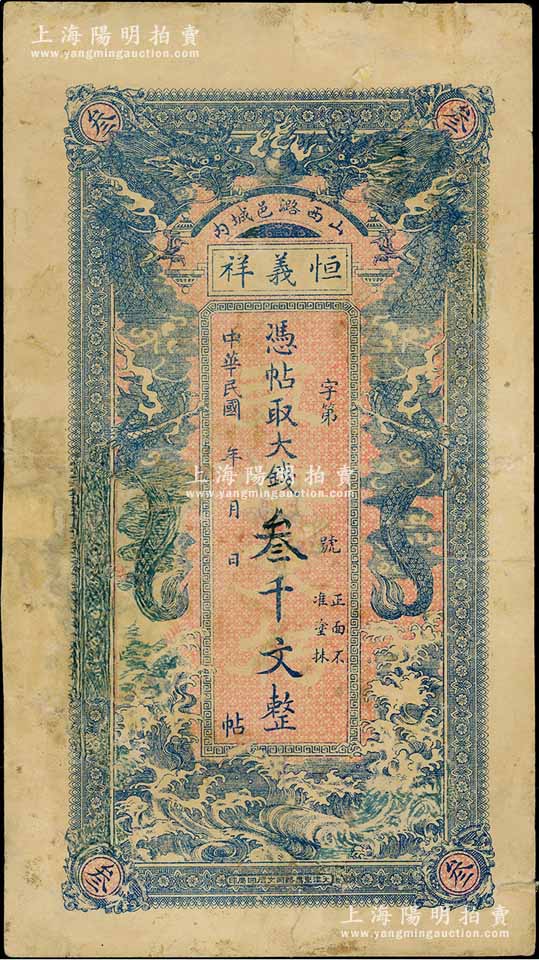 上海陽明拍賣
www.yangmingauction.com
叁
叁
山西潞邑城內
恒義祥
字第 號
正面不
准塗抹
憑帖取大錢叁千文整
中華民國 年 月 日 帖
上海陽明拍賣
www.yangmingauction.com
叁
叁
上海陽明拍賣
www.yangmingauction.com